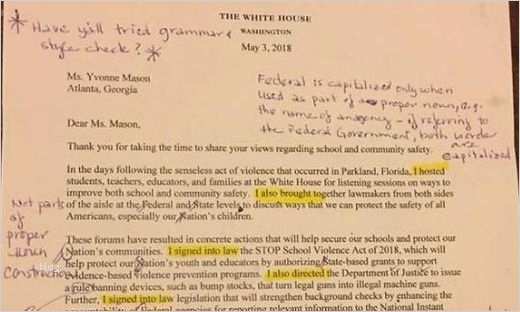 THE WHITE HOUSE
WASHINGTON
* Have y'all tried grammar &
style check? *
May 3, 2018
Ms. Yvonne Mason
Atlanta, Georgia
Federal is capitalized only when
used as part of a proper noun, e.g.
the name of an agency - if referring to
the Federal Government, both words
are
capitalized
Dear Ms. Mason,
Thank you for taking the time to share your views regarding school and community safety.
In the days following the senseless act of violence that occurred in Parkland, Florida, I hosted
students, teachers, educators, and families at the White House for listening sessions on ways to
improve both school and community safety. I also brought together lawmakers from both sides
of the aisle at the Federal and State levels to discuss ways that we can protect the safety of all
Americans, especially our Nation's children.
Not part
of
proper
noun
construction
These forums have resulted in concrete actions that will help secure our schools and protect our
Nation's communities. I signed into law the STOP School Violence Act of 2018, which will
help protect our Nation's youth and educators by authorizing State-based grants to support
evidence-based violence prevention programs. I also directed the Department of Justice to issue
a rule banning devices, such as bump stocks, that turn legal guns into illegal machine guns.
Further, I signed into law legislation that will strengthen background checks by enhancing the
accountability of Federal agencies for reporting relevant information to the National Instant